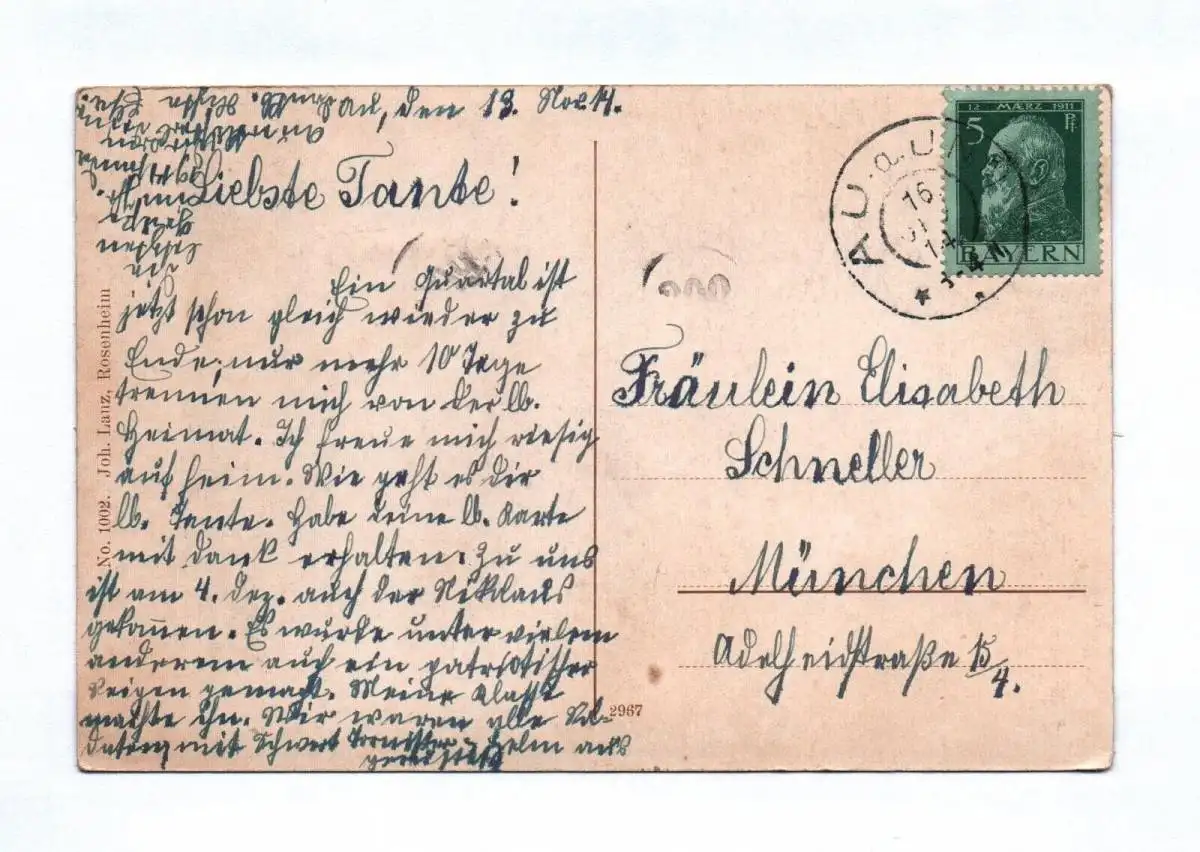 Au, den 13. Nov. 14.
Liebste Tante!
Ein Quartal ist
jetzt schon gleich wieder zu
Ende; nur mehr 10 Tage
trennen mich von der lb.
Heimat. Ich freue mich riesig
auf heim. Wie geht es dir
lb. Tante. Habe deine lb. Karte
mit Dank erhalten. Zu uns
ist am 4. Dez. auch der Nikolaus
gekommen. Es wurde unter vielem
anderem auch ein patriotischer
Reigen gemacht. Meine Klasse
machte ihn. Wir waren alle Sol-
daten, mit Schwert Tornister Helm aus
gerüstet
No. 1002. Joh. Lanz, Rosenheim
2967
12 MÆRZ 1911
5 Pf.
BAYERN
AU a.
16
14
Fräulein Elisabeth
Schneller
München
Adelheidstraße 15/4.